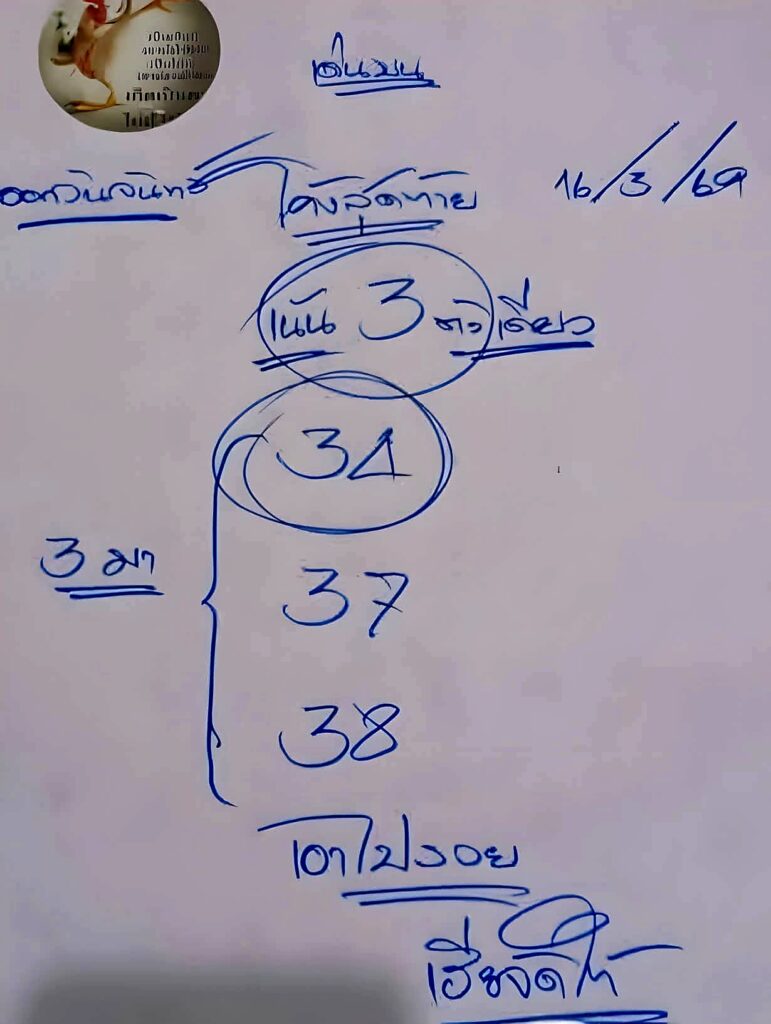 เด่นบน
ออกวันจันทร์ โค้งสุดท้าย 16/3/69
เน้น 3 ตัวเดียว
34
3 มา
37
38
เอาไปรอย
เฮียจัดให้